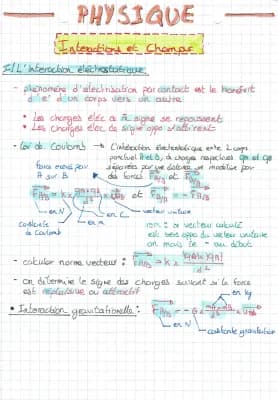 PHYSIQUE
Interactions et Champs
I/L'interaction électrostatique
- phénomène d'électrisation par contact est le transfert
d'e⁻ d'un corps vers un autre
• Les charges élec de m̂ signe se repoussent
• Les charges élec de signe oppo s'attirent
- Loi de Coulomb → L'interaction électrostatique entre 2 corps
ponctuel A et B, de charges respectives qA et qB
séparées par une distance se modélise par
des forces F A/B et F B/A
force exercée par
A sur B
F A/B = k × qA×qB / d² × u AB et F B/A = - F A/B
en N
en C
en m
vecteur unitaire
constante
de Coulomb
rem : si vecteur calculé
est sens oppo du vecteur unitaire
on mais le - au début
- calculer norme vecteur : F A/B = k × |qA|×|qB| / d²
- on détermine le signe des charges suivant si la force
est répulsive ou attractif
• Interaction gravitationnelle :
F A/B = - G × mA×mB / d² × u AB
en kg
en N
constante gravitation